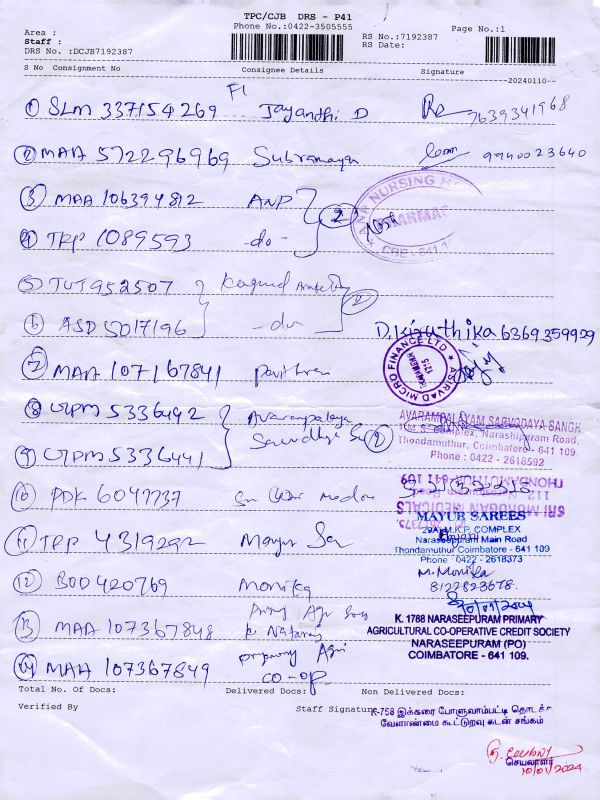 TPC/CJB DRS - P41
Phone No.:0422-3505555
Area :
Staff :
DRS No. :DCJB7192387
RS No.:7192387
RS Date:
Page No.:1
S No Consignment No Consignee Details Signature
20240110
F1
1 SLM 337154269 Jayandhi D 7639341968
2 MAA 572296969 9940023640
3 MAA 106394812 ANP
2
4 TRP 1089593 -do-
5 TUT 952507
2
6 ASD 5017196 -do-
D. Kiruthika 6369359929
ASIRVAD MICRO FINANCE LTD
7 MAA 107167841 Pavithran
8 UPM 5336492 Avarampalaya
2
9 UPM 5336441
AVARAMPALAYAM SARVODAYA SANGH
Complex, Narashipuram Road,
Thondamuthur, Coimbatore - 641 109.
Phone : 0422 - 2618592
10 PDK 6047737
SRI MURUGAN MEDICALS
112
THONDAMUTHUR 641 109
11 TRP 4319292 Mayur Sar
MAYUR SAREES
29A, M.K.P. COMPLEX
Naraseepuram Main Road
Thondamuthur Coimbatore - 641 109
Phone 0422 - 2618373
12 BOD 420769 Monika
M. Monika
8122823678
10/01/2024
13 MAA 107367848
K Nataraj
14 MAA 107367849 Agri
co-op
K. 1788 NARASEEPURAM PRIMARY
AGRICULTURAL CO-OPERATIVE CREDIT SOCIETY
NARASEEPURAM (PO)
COIMBATORE - 641 109.
Total No. Of Docs: Delivered Docs: Non Delivered Docs:
Verified By Staff Signature
K-758 இக்கரை போளுவாம்பட்டி தொடக்க
வேளாண்மை கூட்டுறவு கடன் சங்கம்
செயலாளர்
10/01/2024